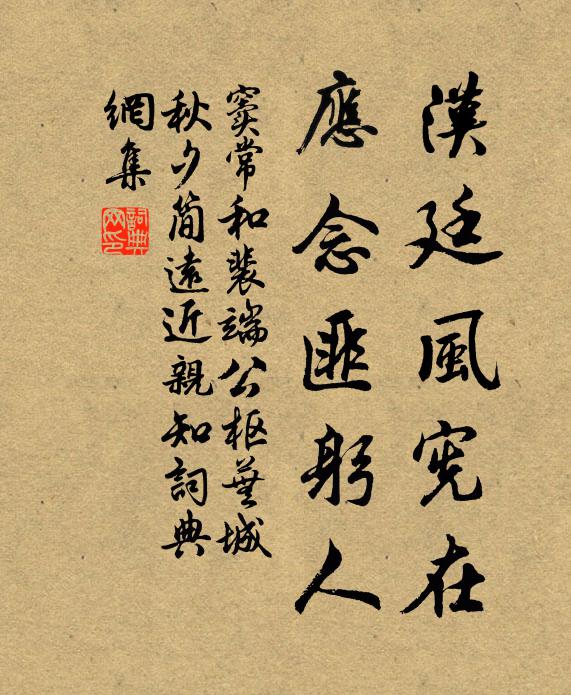 漢廷風宪在
應念匪躬人
窦常和裴端公枢蕪城
秋夕简遠近親知詞典
網集
詞典
网印